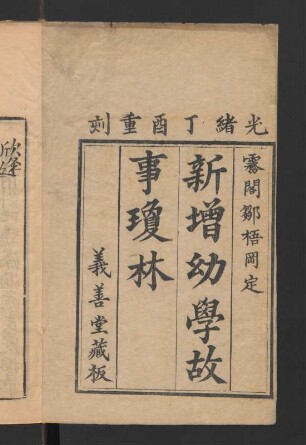 光緒丁酉重刻
霧閣鄒梧岡定
新增幼學故
事瓊林
義善堂藏板